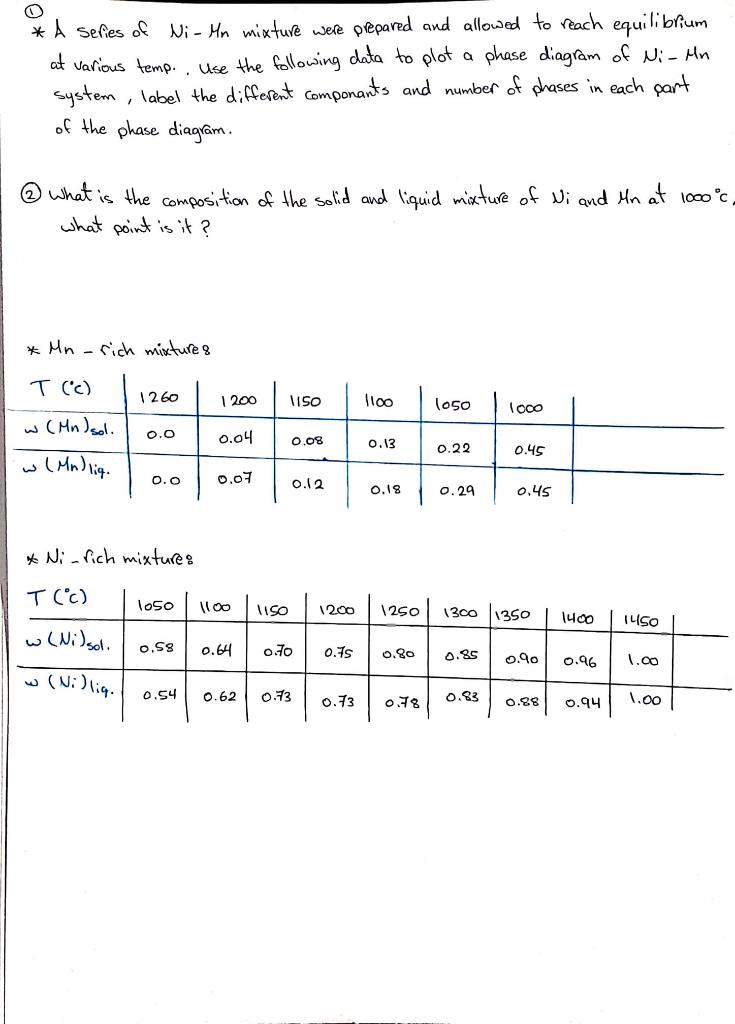 ①
* A series of Ni - Mn mixture were prepared and allowed to reach equilibrium
at various temp. . Use the following data to plot a phase diagram of Ni - Mn
system , label the different componants and number of phases in each part
of the phase diagram.
② what is the composition of the solid and liquid mixture of Ni and Mn at 1000 °C,
what point is it ?
* Mn - rich mixture :
T (°C) 1260 1200 1150 1100 1050 1000
w (Mn)sol. 0.0 0.04 0.08 0.13 0.22 0.45
w (Mn)liq. 0.0 0.07 0.12 0.18 0.29 0.45
* Ni - rich mixture :
T (°C) 1050 1100 1150 1200 1250 1300 1350 1400 1450
w (Ni)sol. 0.58 0.64 0.70 0.75 0.80 0.85 0.90 0.96 1.00
w (Ni)liq. 0.54 0.62 0.73 0.73 0.78 0.83 0.88 0.94 1.00